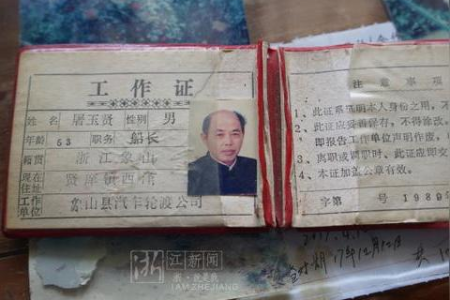 工作证
姓名 屠玉贤 性别 男
年龄 53 职务 船长
籍贯 浙江象山
现在住址 贤庠镇西
工作单位 象山县汽车轮渡公司
注意事项
1、此证系证明本人身份之用,不
2、此证应妥善保存,不得涂改,
即报告工作单位声明作废,
3、离职或调职时,此证应即交
4、本证加盖公章有效。
字第 号 1989
17年12月12日
浙江新闻
I AM ZHEJIANG